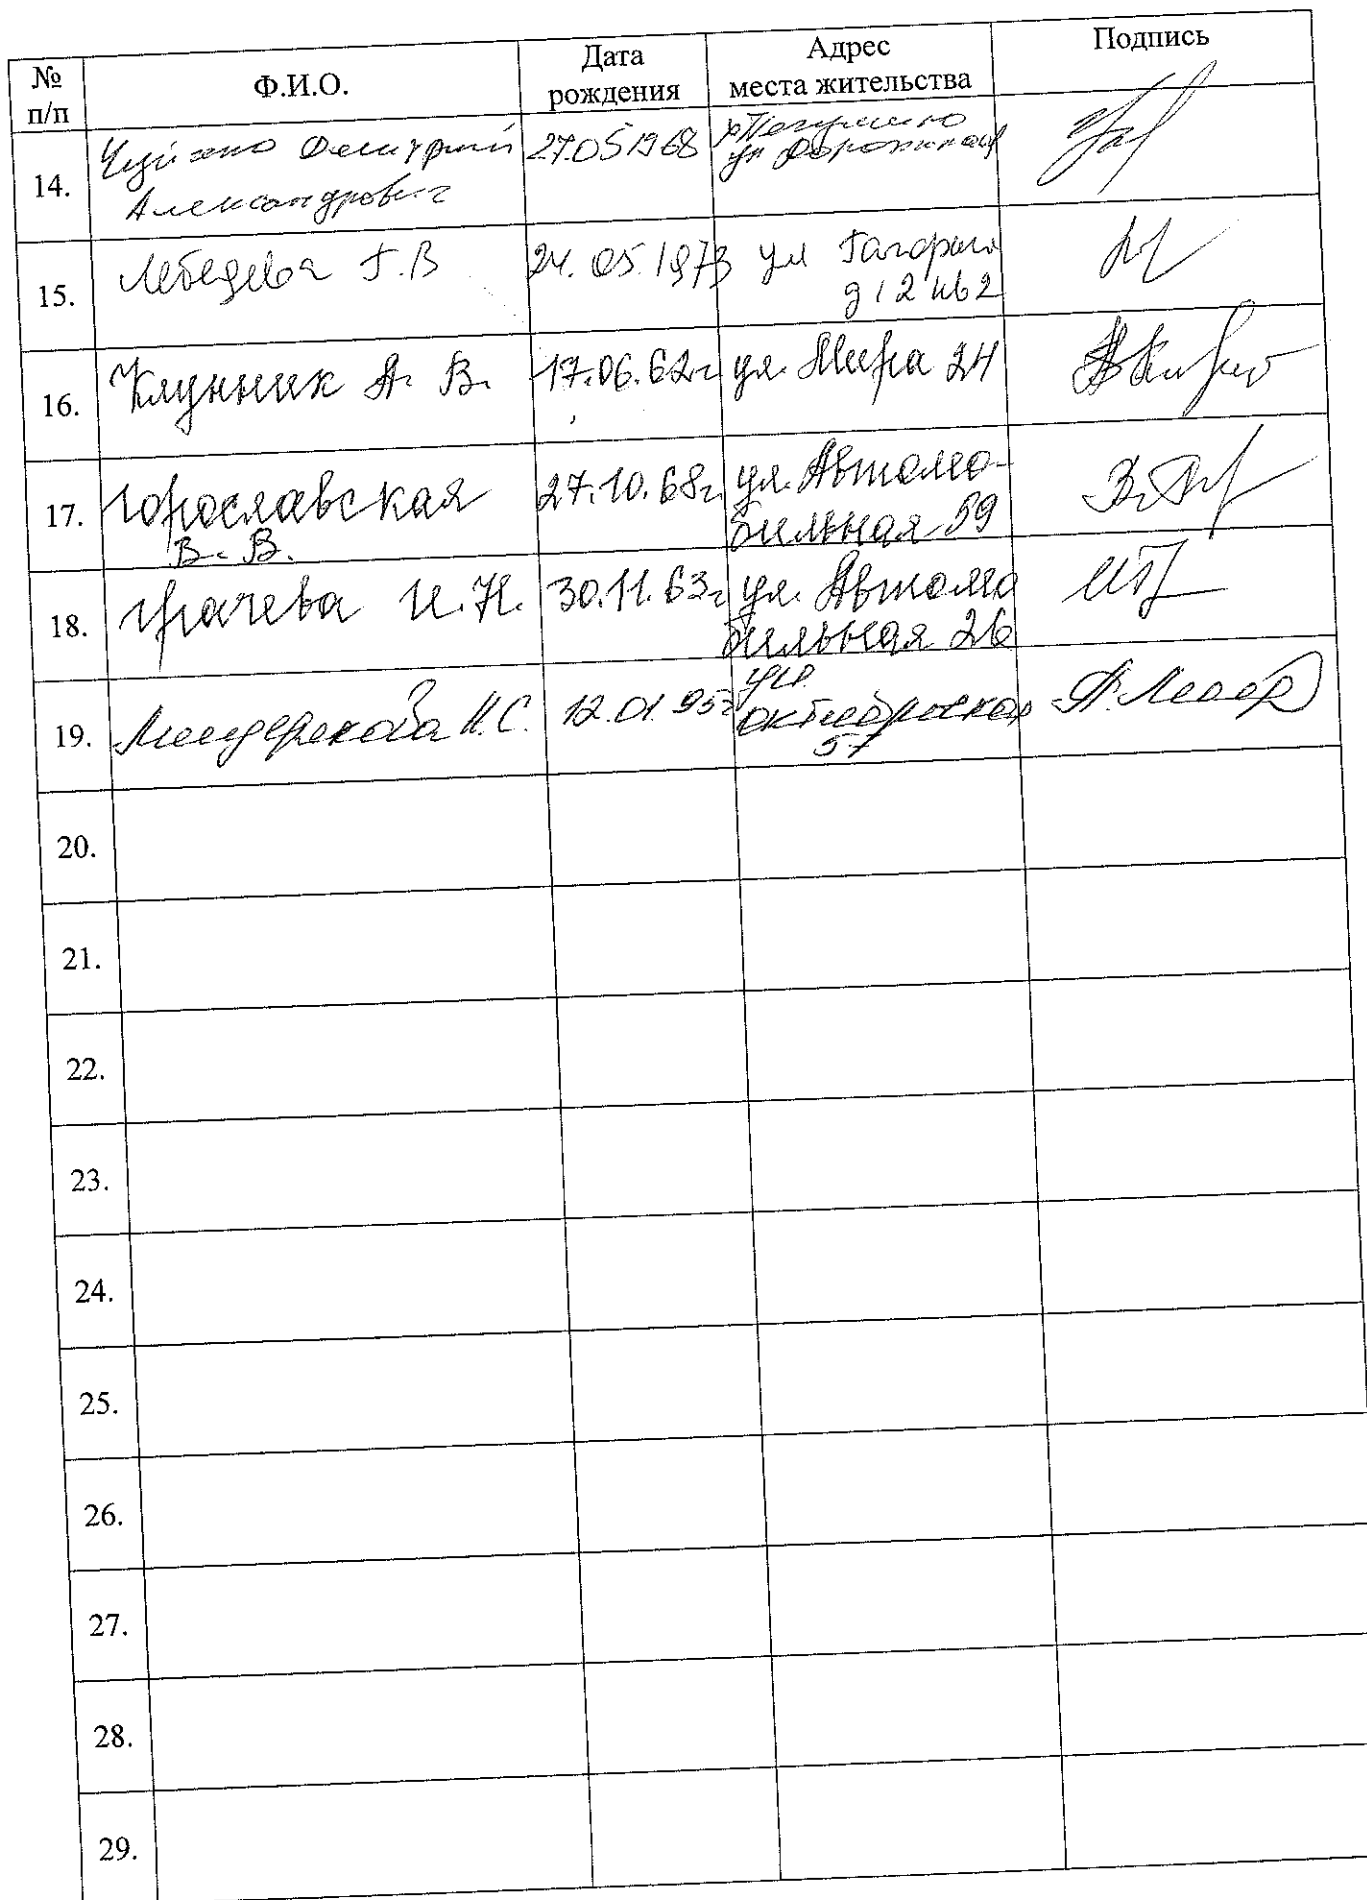 № п/п
Ф.И.О.
Дата рождения
Адрес места жительства
Подпись
14.
Дмитрий
Александрович
27.05 1968
ул Дорожная
15.
Лебедева Г.В
24.05.1973
ул Гагарина
д 12 кв 2
16.
Клунник А. В.
17.06.62г
ул. Мира 24
17.
Горославская
В. В.
27.10.68г
ул. Автомо-
бильная 59
18.
Грачева И.Н.
30.11.63г
ул. Автомо
бильная 26
19.
Н.С.
12.01.95г
ул.
Октябрьская
57
20.
21.
22.
23.
24.
25.
26.
27.
28.
29.